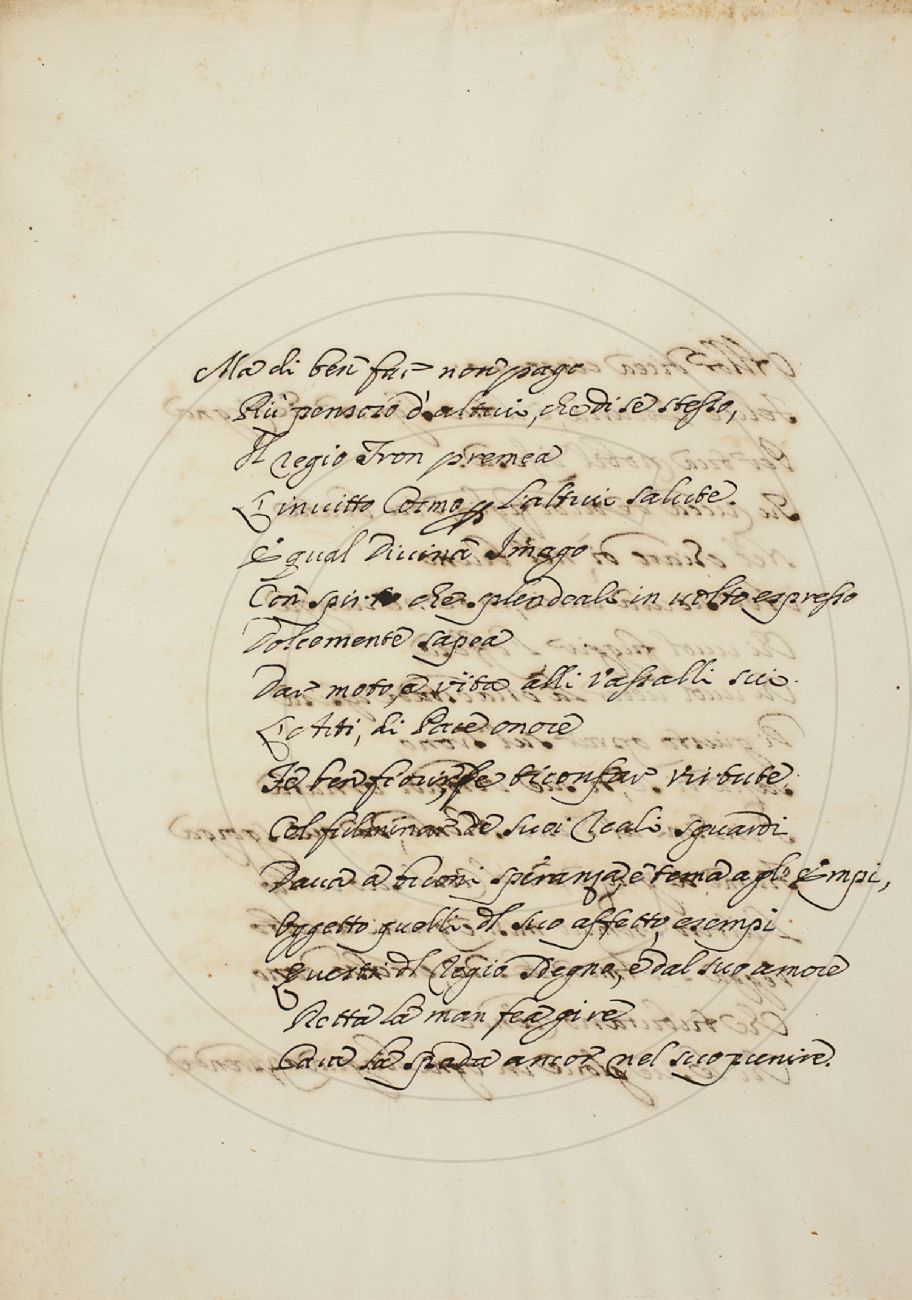 Ma di ben far non pago
Più pensoso d'altrui, che di se stesso,
Il regio Tron premea
L'invitto Cosmo per l'altrui salute
E qual Divina Imago
Con spirto che splendeali in volto espresso
Dolcemente sapea
Dar moto, e vita alli Vassalli sui
L'Arti, di Pace onore
Fe ben fiorir, fe trionfar virtute
Col fulminar de suoi Reali sguardi
Dava a buoni speranza, e tema a gl'Empi,
Oggetto quelli del suo affetto, esempi
Questi del Regio Degno, e dal suo amore
Retta la man fea gire
Cava la spada ancor nel suo punire.